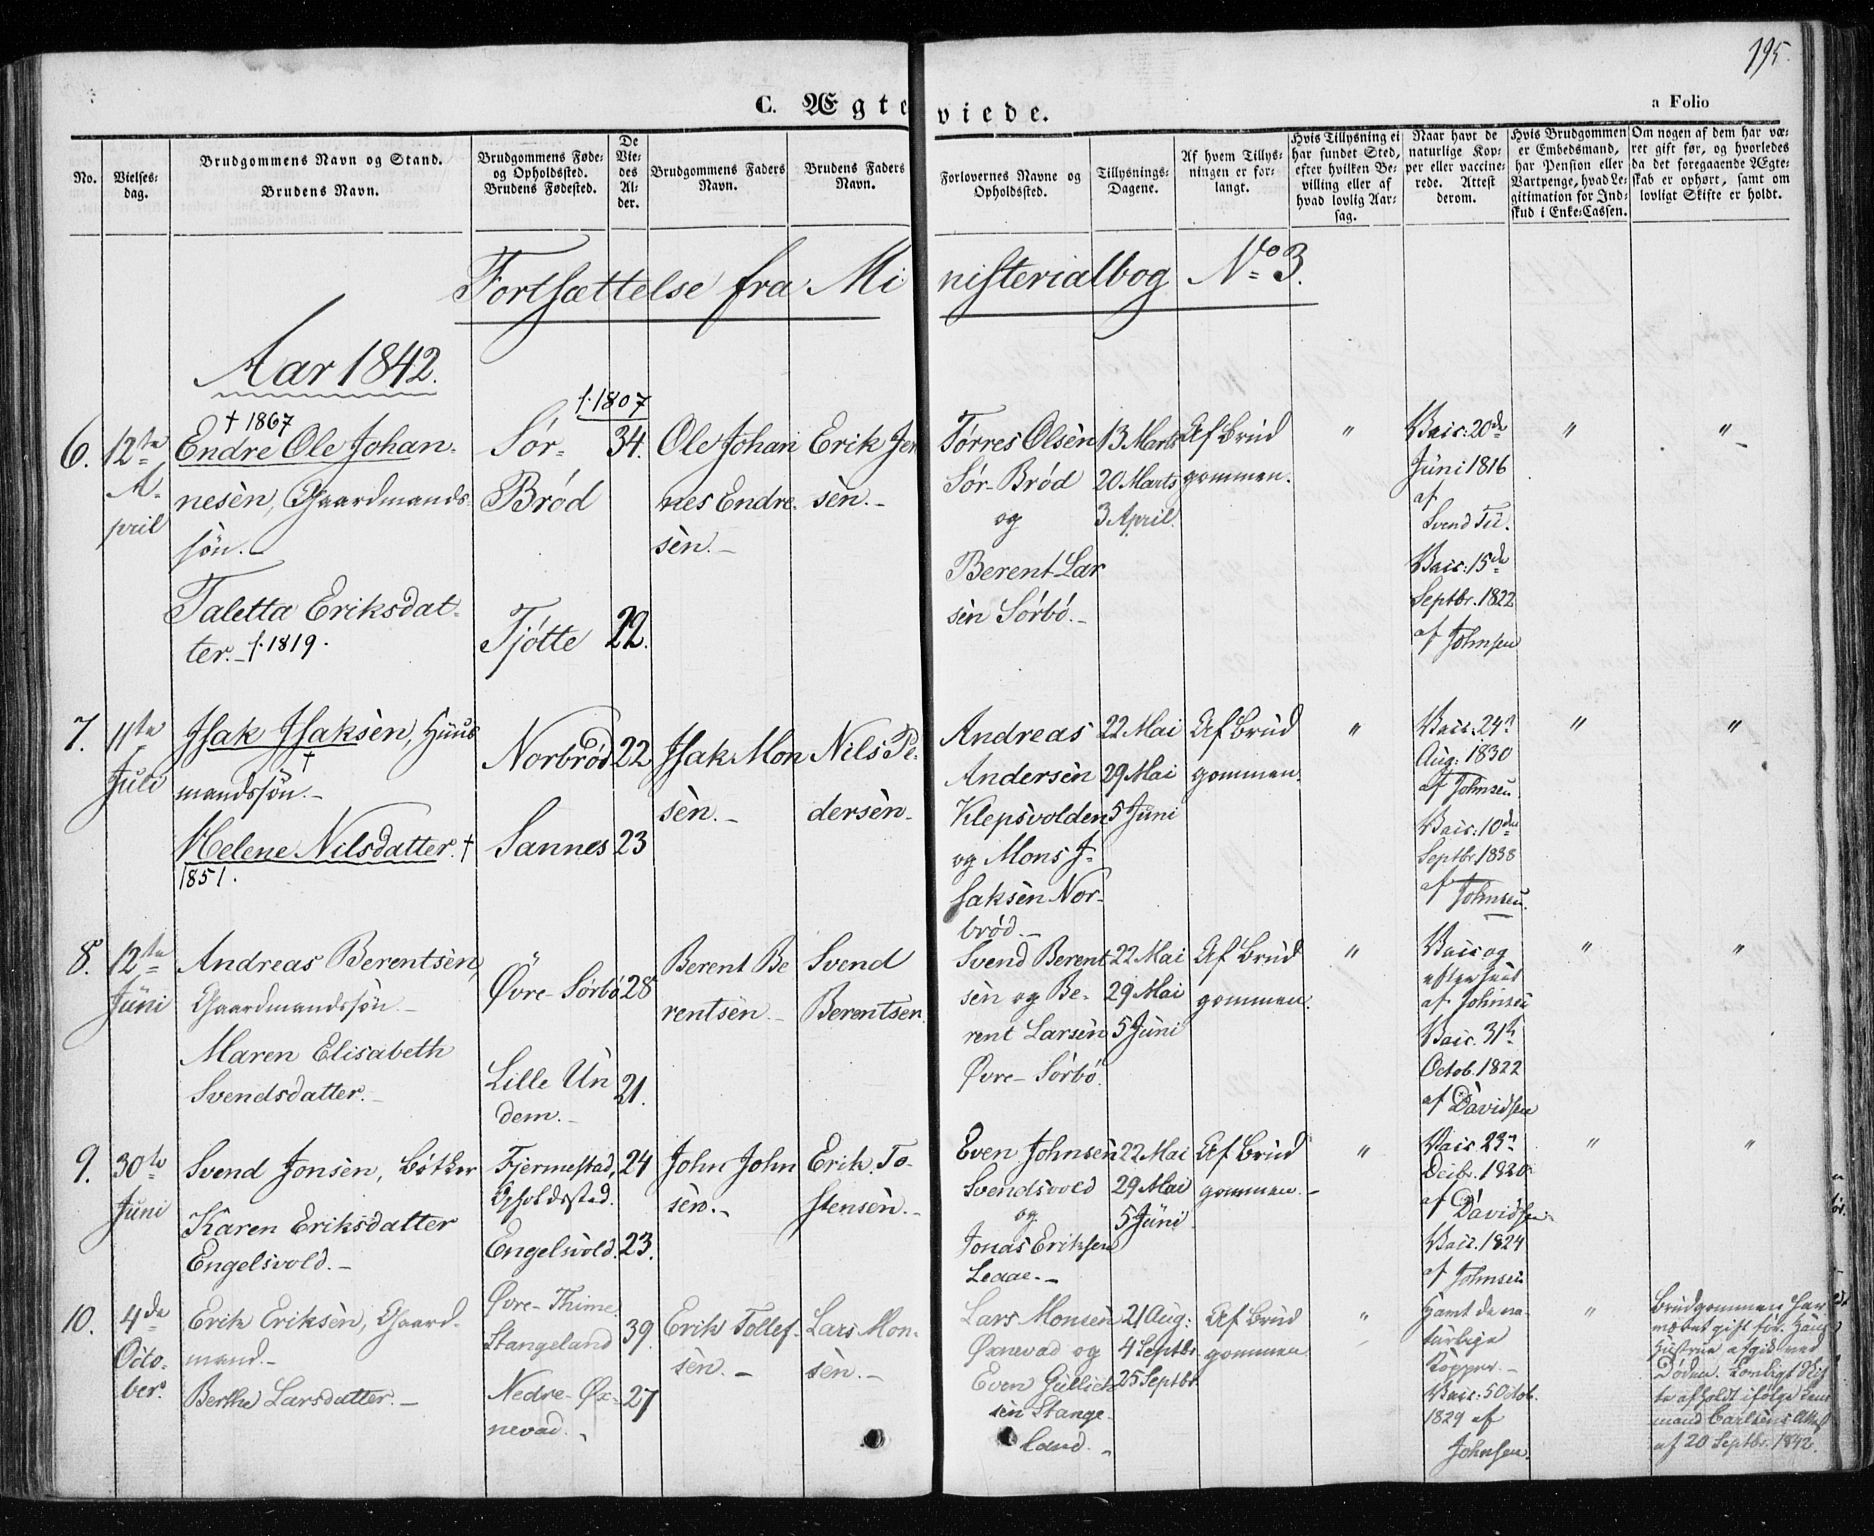 195.
C. Ægteviede.
a Folio
No.
Vielses-
dag.
Brudgommens Navn og Stand.
Brudens Navn.
Brudgommens Føde-
og Opholdssted.
Brudens Fødested.
De
Vie-
des
Al-
der.
Brudgommens Faders
Navn.
Brudens Faders
Navn.
Forlovernes Navne og
Opholdssted.
Tillysnings-
Dagene.
Af hvem Tillys-
ningen er for-
langt.
Hvis Tillysning ei
har fundet Sted,
efter hvilken Be-
villing eller af
hvad lovlig Aar-
sag.
Naar havt de
naturlige Kop-
per eller vaccine-
rede. Attest
derom.
Hvis Brudgommen
er Embedsmand,
har Pension eller
Vartpenge, hvad Le-
gitimation for Ind-
skud i Enke-Cassen.
Om nogen af dem har væ-
ret gift før, og hvorledes
da det foregaaende Ægte-
skab er ophørt, samt om
lovligt Skifte er holdt.
Fortsættelse fra Ministerialbog No 3.
Aar 1842.
6.
12te
A-
pril
† 1867
Endre Ole Johan-
nesèn, Gaardmands-
søn.-
Taletta Eriksdat-
ter.- f. 1819.
Sør-
Brød
Tjøtte
f. 1807
34.
22.
Ole Johan
nes Endre-
sèn.-
Erik Jen
sèn.-
Tørres Olsèn
Sør-Brød
og
Berent Lar
sèn Sørbø.-
13 Marts
20 Marts
3 April.
Af Brud
gommen.
"
Vaic: 20de
Juni 1816
af
Svend Tu.
Vaic: 15de
Septbr. 1822
af Johnsen
"
"
7.
11te
Juli
Isak Isaksèn, Huus
mandssøn.- †
Helene Nilsdatter. †
1851.
Norbrød
Sannes
22
23
Isak Mon
sèn.-
Nils Pe-
dersèn-
Andreas
Andersèn
Klepsvolden
og Mons I-
saksèn Nor-
brød.-
22 Mai
29 Mai
5 Juni
Af Brud
gommen.
"
Vaic. 24n
Aug: 1830
af Johnsen.
Vaic: 10de
Septbr. 1838
af Johnsen.
"
"
8.
12te
Juni
Andreas Berentsèn,
Gaardmandssøn.-
Maren Elisabeth
Svendsdatter.-
Øvre-Sørbø
Lille Un
dem.-
28
21.
Berent Be
rentsèn-
Svend
Berentsèn
Svend Berent
sèn og Be-
rent Larsèn
Øvre-Sørbø.
22 Mai
29 Mai
5 Juni
Af Brud
gommen.
"
Vaic og
af Johnsen
Vaic. 31te
Octob. 1822
af Davidsen
"
"
9.
30te
Juni
Svend Jonsèn, Bøtker
Karen Eriksdatter
Engelsvold.-
Fjermestad,
Opholdssted.
Engelsvold.
24
23.
John John
sèn.-
Erik To-
stensèn.-
Even Johnsèn
Svendsvold
og
Jonas Eriksen
Legae.-
22 Mai
29 Mai
5 Juni
Af Brud
gommen.-
"
Vaic. 23n
Decbr. 1820
af Davidsen
Vaic. 1824
af Johnsen
"
"
10.
4de
Octo-
ber.
Erik Eriksèn, Gaard-
mand.-
Berthe Larsdatter.-
Øvre-Thime
Stangeland
Nedre-Øx-
nevad.-
39.
27
Erik Tollef-
sèn.-
Lars Mon-
sèn.-
Lars Monsèn
Øxnevad og
Even Gullick
sèn Stange-
land.-
21 Aug:
4 Septbr.
25 Septbr.
Af Brud
gommen.
"
Havt de na-
turlige
Kopper.-
Vaic. 5 Octob.
1829 af
Johnsen.
"
Brudgommen har
været gift før. Hans
Hustrue afgik ved
Døden. Lovligt Skif
te afholdt ifølge Lens
mand Carlsèns Attest
af 20 Septbr. 1842.